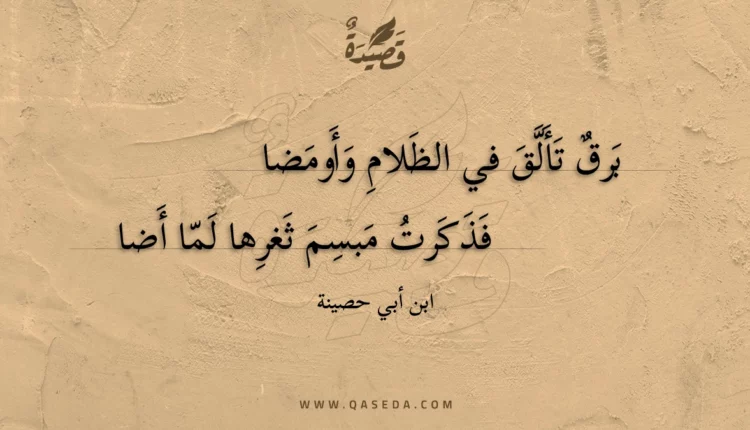 قَصِيْدَةٌ
بَرقٌ تَأَلَّقَ في الظَلامِ وَأَومَضا
فَذَكَرتُ مَبسِمَ ثَغرِها لَمّا أَضا
ابن أبي حصينة
WWW.QASEDA.COM